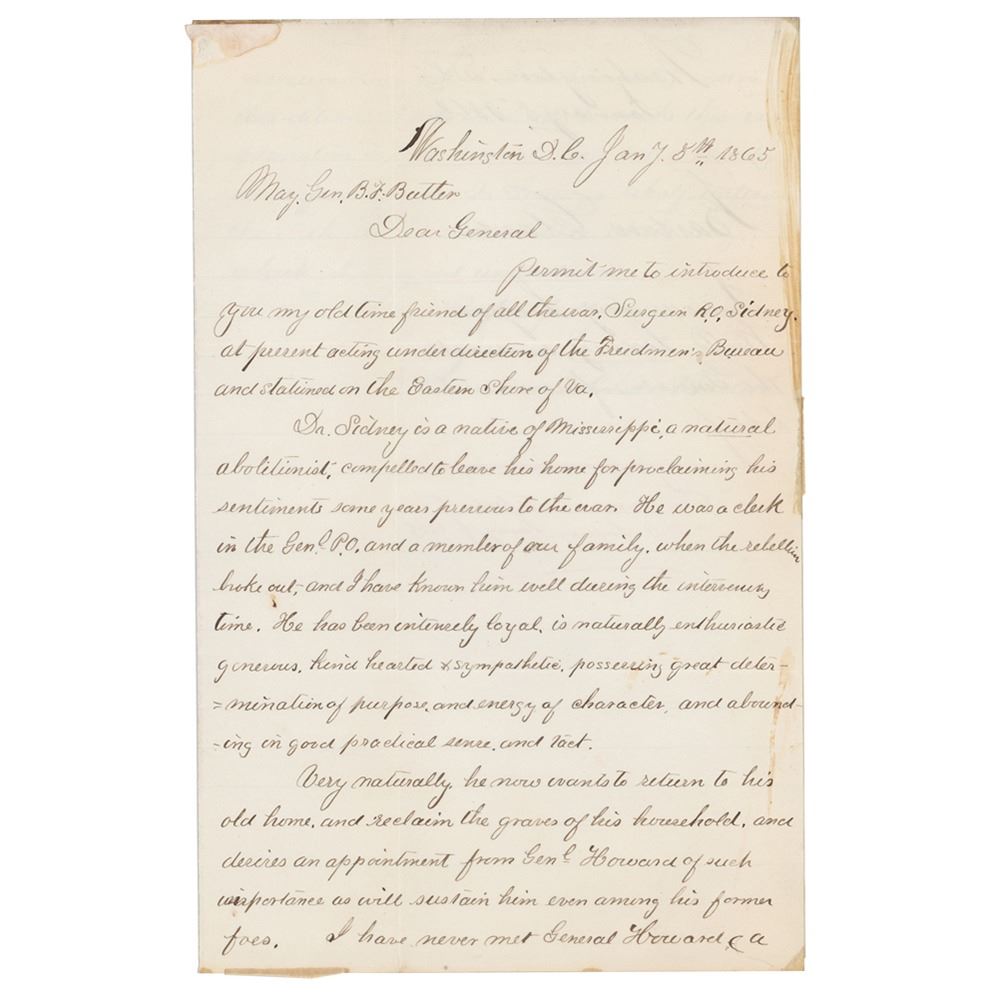 Washington D.C. Jany. 8th 1865
Maj. Gen. B.F. Butler
Dear General
Permit me to introduce to
you my old time friend of all the war, Surgeon R.O. Sidney,
at present acting under direction of the Freedmen's Bureau
and stationed on the Eastern Shore of Va.
Dr. Sidney is a native of Mississippi, a natural
abolitionist, compelled to leave his home for proclaiming his
sentiments some years previous to the war. He was a clerk
in the Genl P.O. and a member of our family, when the rebellion
broke out, and I have known him well during the intervening
time. He has been intensely loyal, is naturally enthusiastic
generous, kind hearted & sympathetic, possessing great deter-
=mination of purpose, and energy of character, and abound-
-ing in good practical sense, and tact.
Very naturally, he now wants to return to his
old home, and reclaim the graves of his household, and
desires an appointment from Genl Howard of such
importance as will sustain him even among his former
foes. I have never met General Howard & a